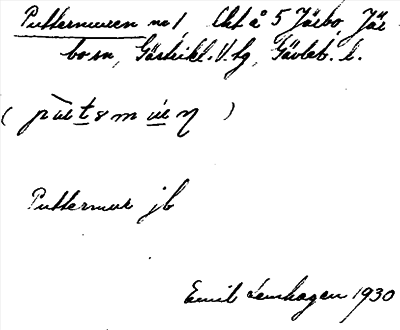 Puttermuren nr 1, Ökt å 5 Järbo, Jär
bo sn, Gästrikl. V. hg, Gävleb. l.
( pu̇tərmu̇ren )
Puttermur jb
Emil Lenhagen 1930